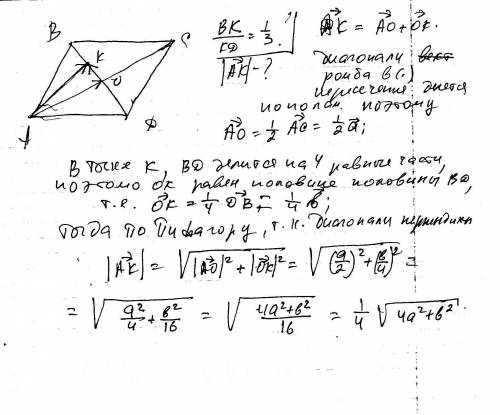 B C K O A D
BK/KD = 1/3
|AK| - ?
AK = AO + OK.
диагонали
ромба в (·)
пересечения делятся
пополам. поэтому
AO = 1/2 AC = 1/2 a;
В точке K, BD делится на 4 равные части,
поэтому OK равен половине половины BD,
т.е. OK = 1/4 DB = 1/4 b;
Тогда по Пифагору, т.к. диагонали перпендик
|AK| = √|AO|² + |OK|² = √(a/2)² + (b/4)² =
= √a²/4 + b²/16 = √4a² + b²/16 = 1/4 √4a² + b²